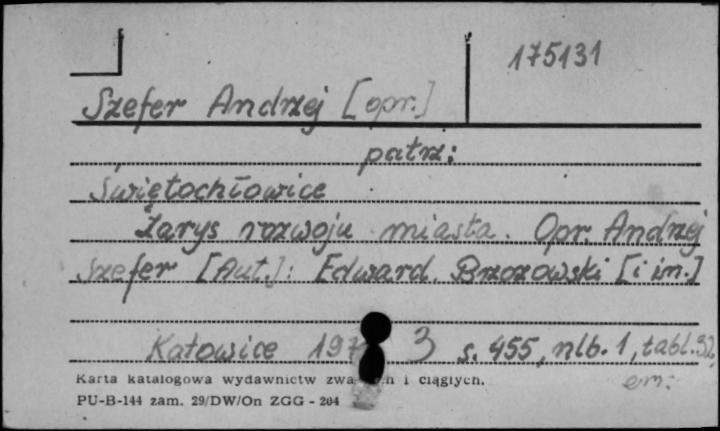 175131
Szefer Andrzej [opr.]
patrz:
Świętochłowice
Zarys rozwoju miasta. Opr. Andrzej
Szefer [Aut.]: Edward Brzozowski [i in.]
Katowice 197 3 s. 455, nlb. 1, tabl. 32,
err.
Karta katalogowa wydawnictw zwa n i ciągłych.
PU-B-144 zam. 29/DW/On ZGG - 204